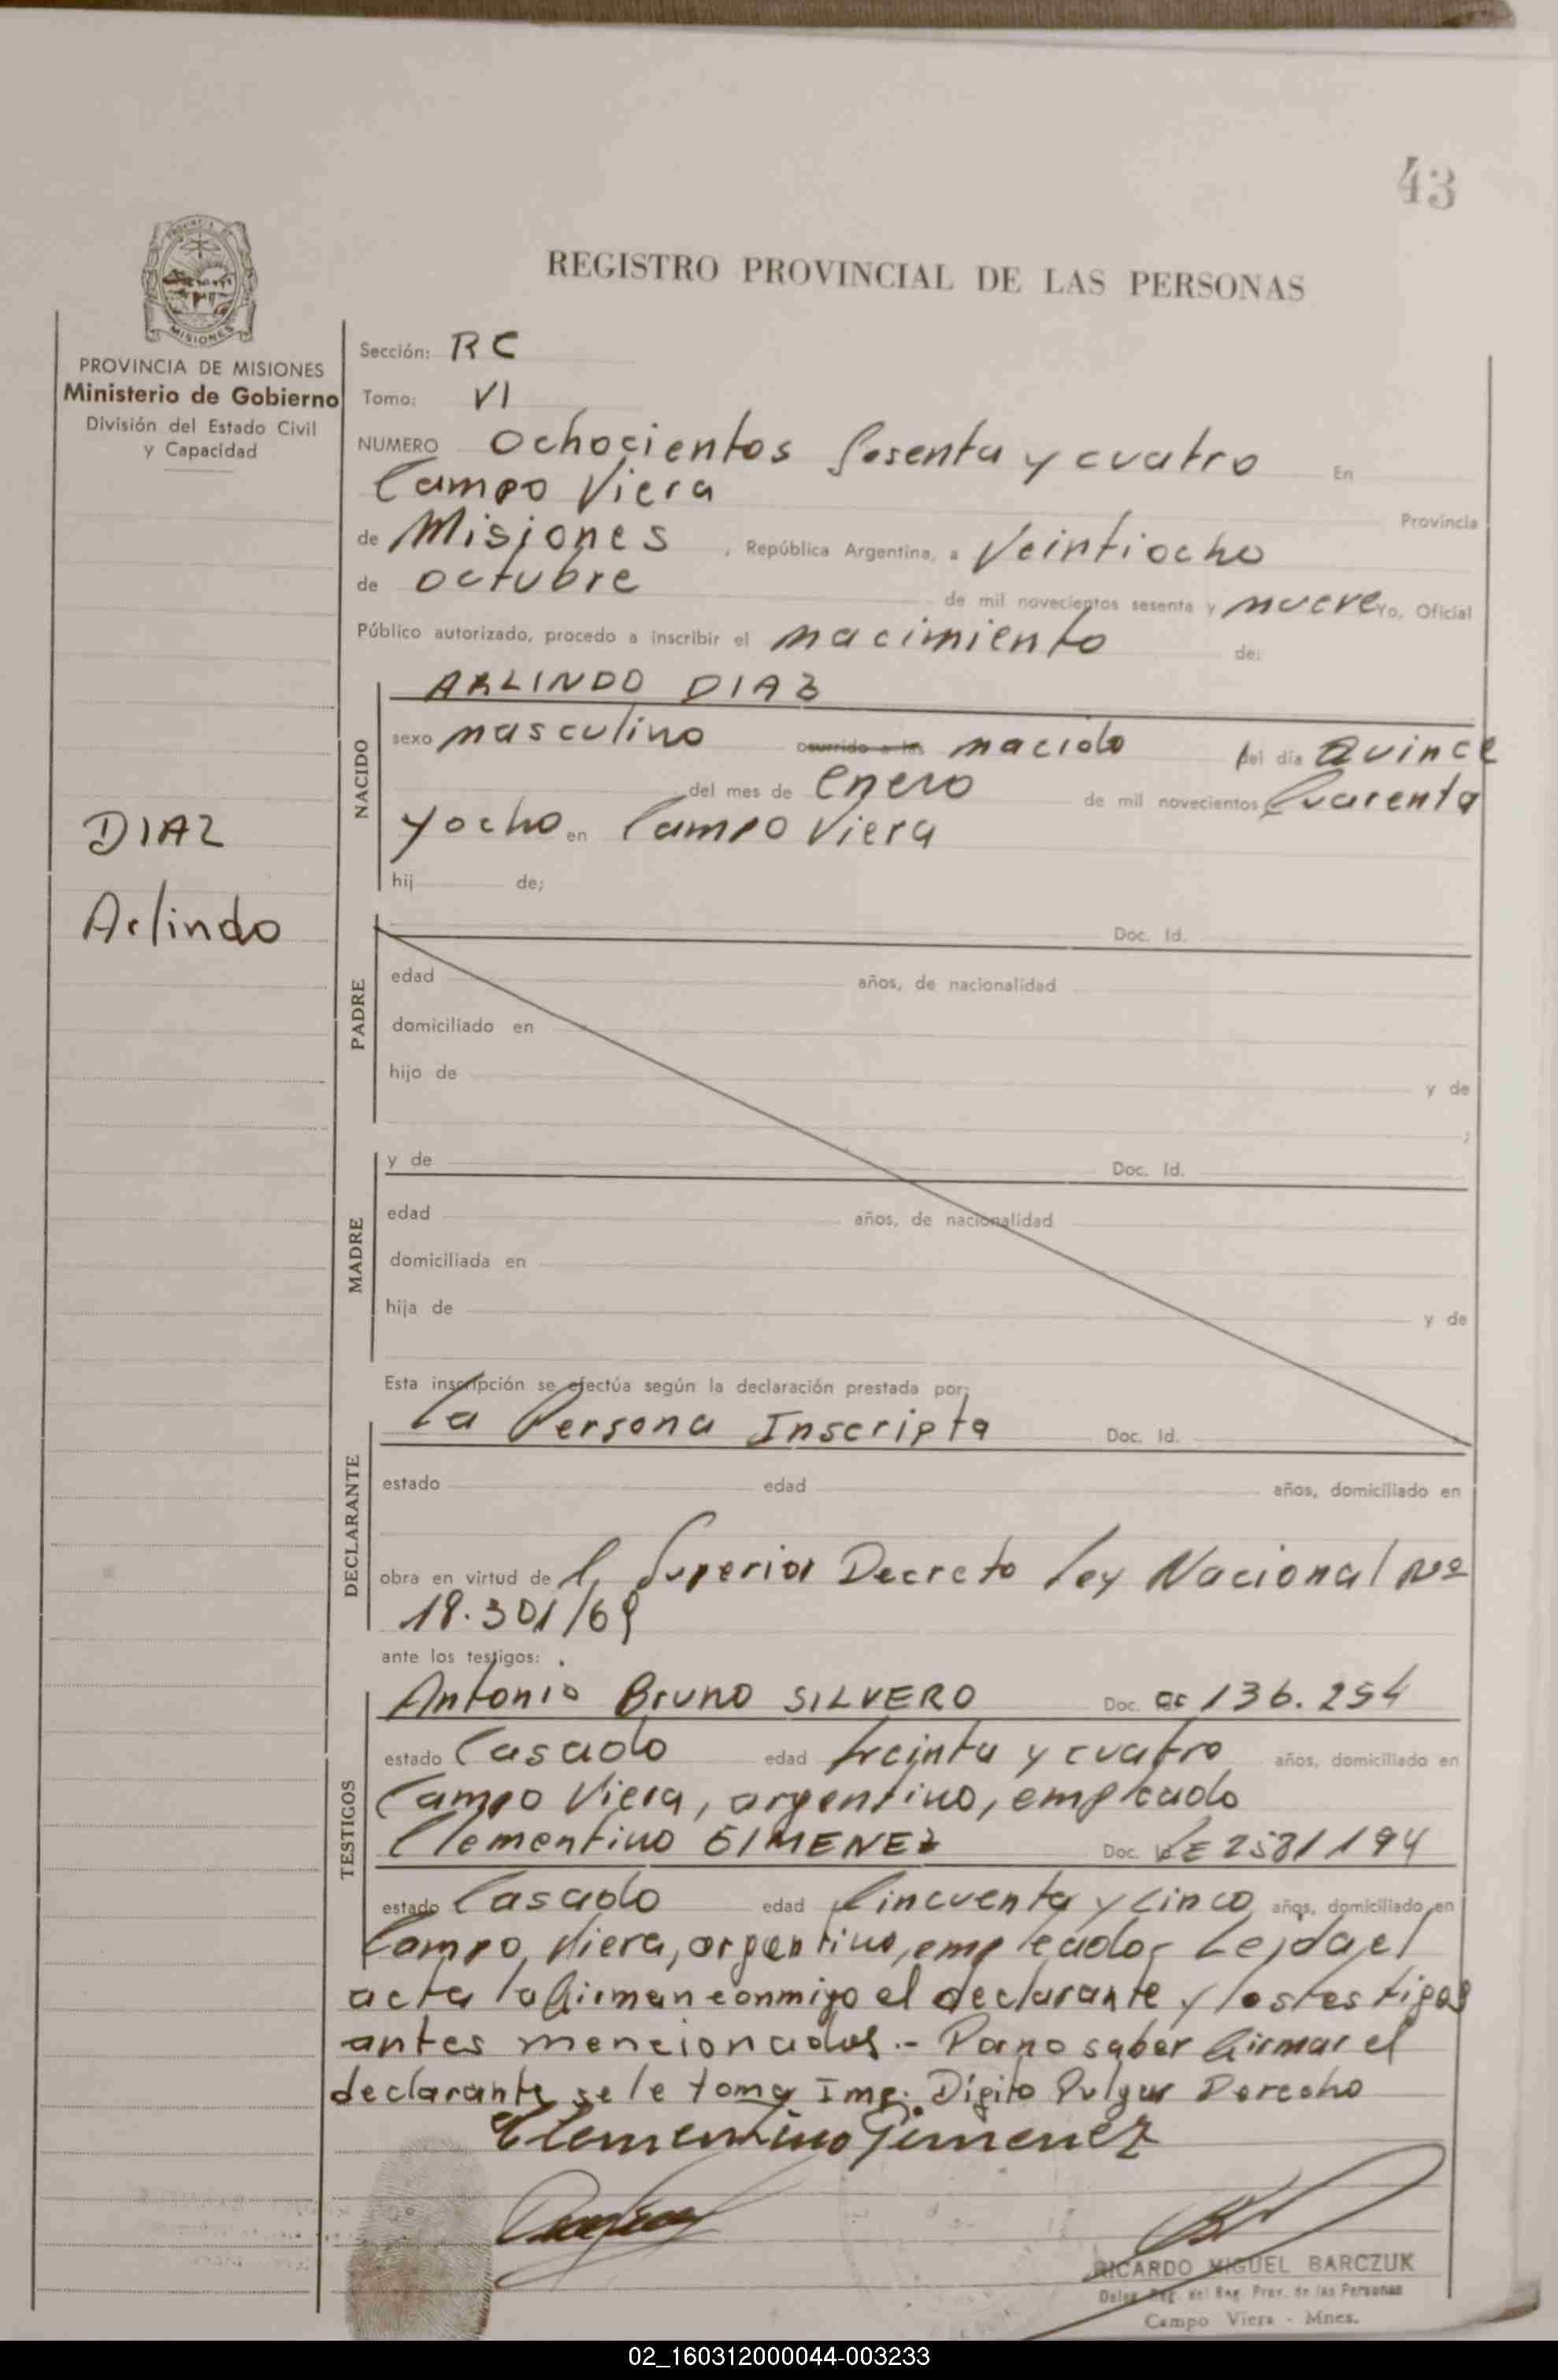 43
MISIONES
REGISTRO PROVINCIAL DE LAS PERSONAS
PROVINCIA DE MISIONES
Ministerio de Gobierno
División del Estado Civil
y Capacidad
DIAZ
Arlindo
Sección: RC
Tomo: VI
NUMERO Ochocientos Sesenta y cuatro En
Campo Viera Provincia
de Misiones, República Argentina, a Veintiocho
de octubre de mil novecientos sesenta y nueve Yo, Oficial
Público autorizado, procedo a inscribir el nacimiento de:
NACIDO
ARLINDO DIAZ
sexo masculino ocurrido a las nacido del día Quince
del mes de Enero de mil novecientos Cuarenta
y ocho en Campo Viera
hij de;
PADRE
Doc. Id.
edad años, de nacionalidad
domiciliado en
hijo de y de
;
MADRE
y de Doc. Id.
edad años, de nacionalidad
domiciliada en
hija de y de
Esta inscripción se efectúa según la declaración prestada por:
DECLARANTE
La Persona Inscripta Doc. Id.
estado edad años, domiciliado en
obra en virtud de l, Superior Decreto Ley Nacional Nº
18.301/69
ante los testigos:
TESTIGOS
Antonio Bruno SILVERO Doc. 136.254
estado Casado edad treinta y cuatro años, domiciliado en
Campo Viera, argentino, empleado
Clementino GIMENEZ Doc. LE 2581194
estado Casado edad Cincuenta y cinco años, domiciliado en
Campo Viera, argentino, empleado, Leida el
acta la firman conmigo el declarante y los testigos
antes mencionados.- Por no saber firmar el
declarante se le toma Imp. Digito Pulgar Derecho
Clementino Gimenez
RICARDO MIGUEL BARCZUK
Deleg. Reg. del Reg. Prov. de las Personas
Campo Viera - Mnes.
02_160312000044-003233